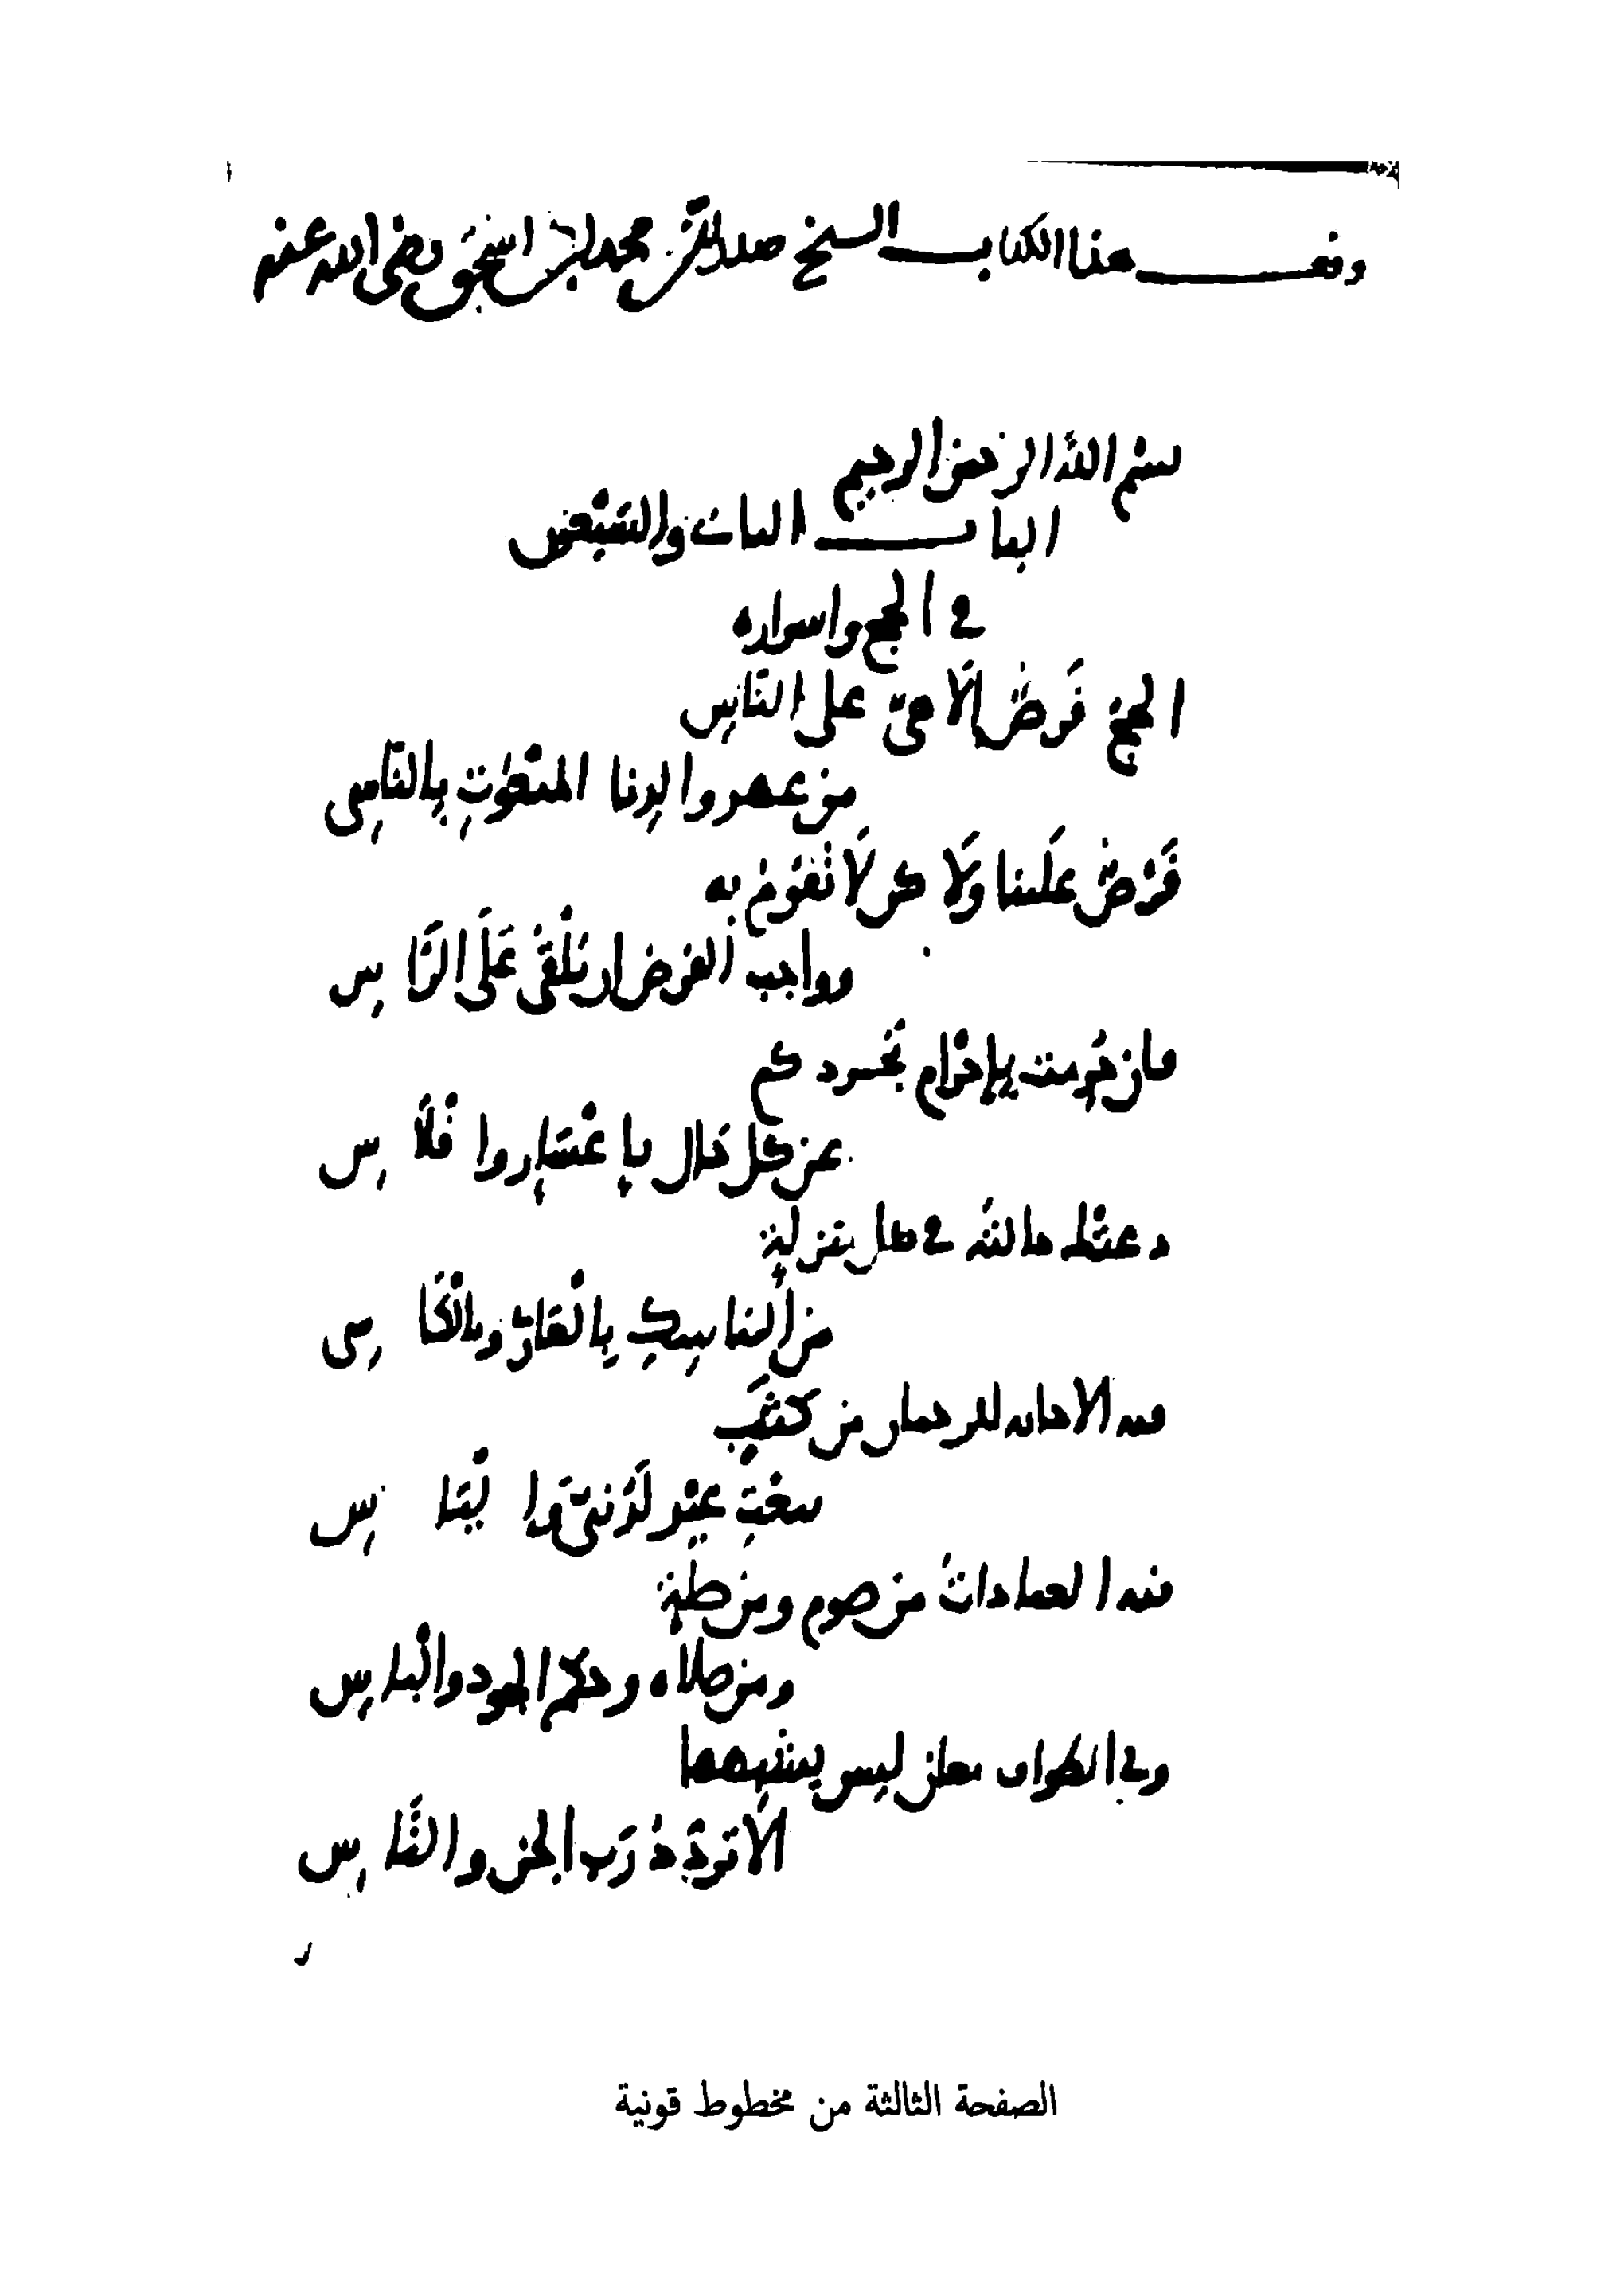 وقف هذا الكتاب الشيخ صدر الدين محمد بن اسحق رضي الله عنه
بسم الله الرحمن الرحيم
الباب الثاني والسبعون
في الحج واسراره
الحج فرض الاهي على الناس
من عهد والدنا المنعوت بالناسي
فرض علينا ولاكن لا نقوم به
وواجب الفرض ان نلقى على الراس
فان حرمت باحرام تجردكم
عن كل حال باعسار وافلاس
دعتك حالته في كل منزلة
من المناسك بالعاري وبالكاسي
فيه الاجابة للرحمان من كثب
بنعت عبد لدني والباس
فيه العبادات من صوم ومن صلة
ومن صلاة وحكم الجود والباس
وفي الطواف معان ليس يشبهها
الا تردد رب الجن والناس
الصفحة الثالثة من مخطوط قونية